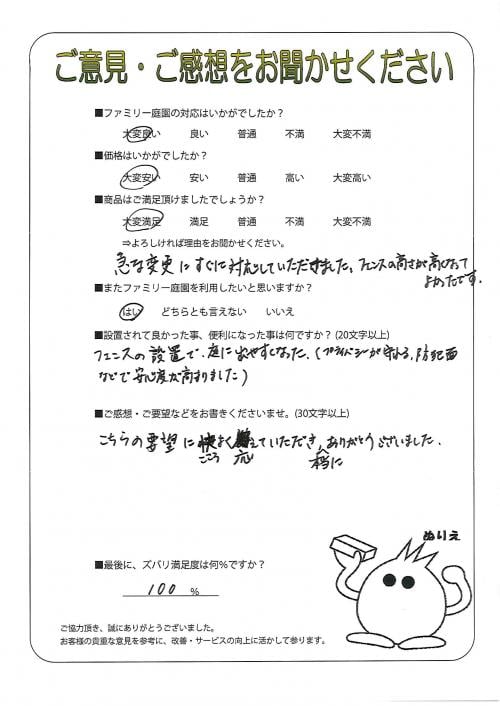 ご意見・ご感想をお聞かせください
■ファミリー庭園の対応はいかがでしたか？
大変良い 良い 普通 不満 大変不満
■価格はいかがでしたか？
大変安い 安い 普通 高い 大変高い
■商品はご満足頂けましたでしょうか？
大変満足 満足 普通 不満 大変不満
⇒よろしければ理由をお聞かせください。
急な変更にすぐに対応していただきました。フェンスの高さが高くなって
よかったです。
■またファミリー庭園を利用したいと思いますか？
はい どちらとも言えない いいえ
■設置されて良かった事、便利になった事は何ですか？(20文字以上)
フェンスの設置で、庭に出やすくなった。(プライバシーが守れる、防犯面
などで安心度が高まりました)
■ご感想・ご要望などをお書きくださいませ。(30文字以上)
こちらの要望に快よく えていただき、ありがとうございました。
こころ 応 本当に
ぬりえ
■最後に、ズバリ満足度は何％ですか？
100 %
ご協力頂き、誠にありがとうございました。
お客様の貴重な意見を参考に、改善・サービスの向上に活かして参ります。